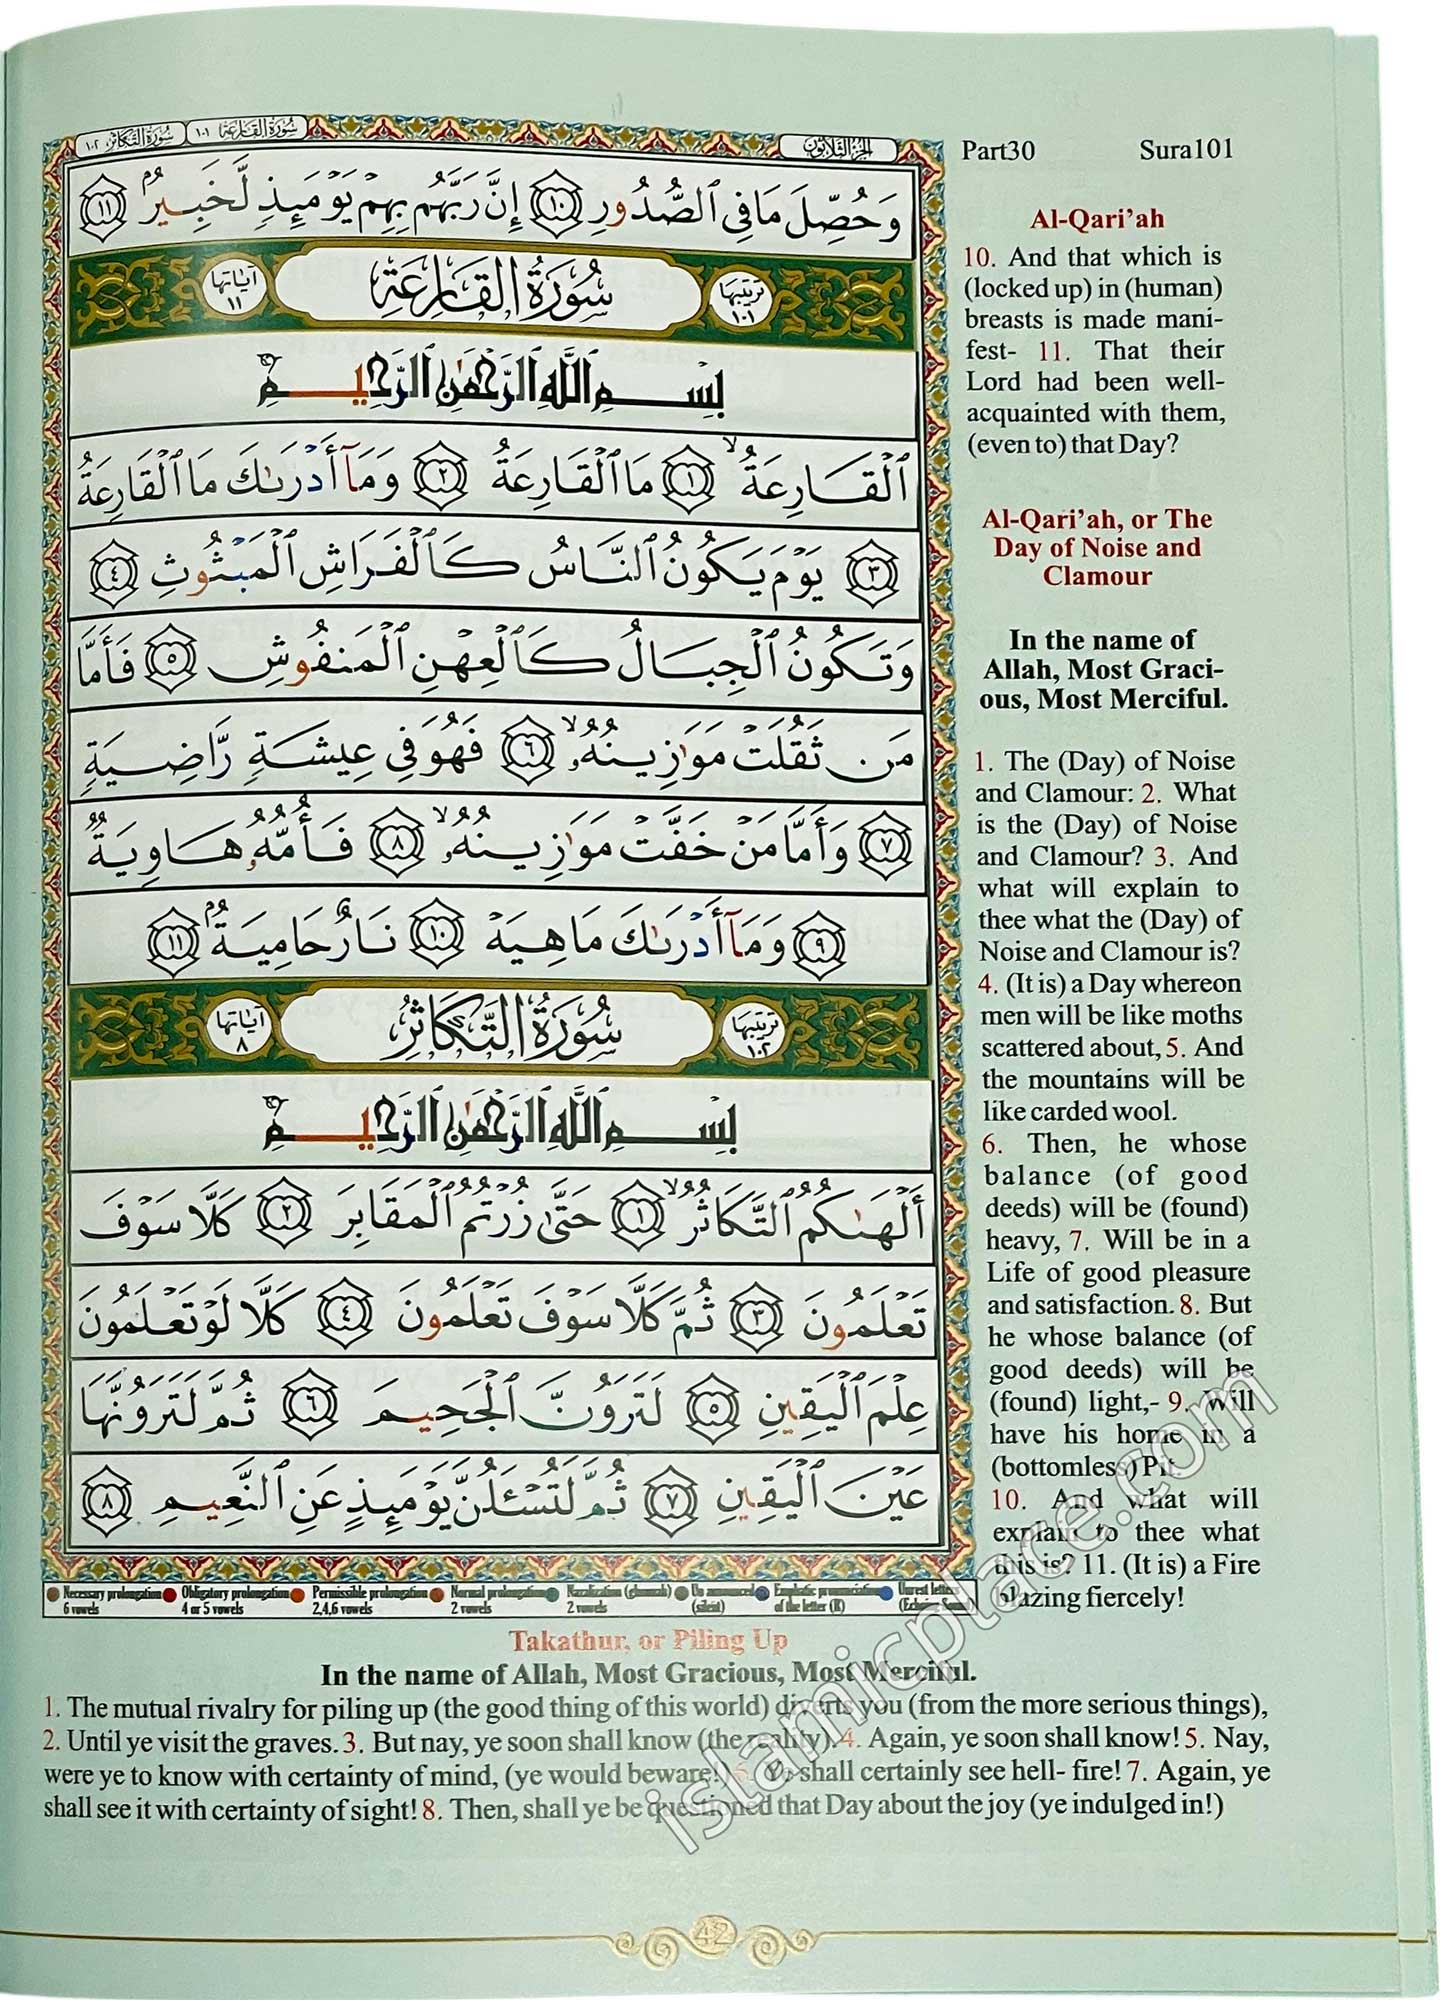 سُورَةُ التَّكَاثُرِ ١٠٢ سُورَةُ القَارِعَةِ ١٠١
الجُزْءُ الثَّلَاثُونَ
Part30 Sura101
وَحُصِّلَ مَا فِي ٱلصُّدُورِ ١٠ إِنَّ رَبَّهُم بِهِمْ يَوْمَئِذٍ لَّخَبِيرٌۢ ١١
سُورَةُ القَارِعَةِ
ترتيبها ١٠١
آياتها ١١
بِسْمِ ٱللَّهِ ٱلرَّحْمَٰنِ ٱلرَّحِيمِ
ٱلْقَارِعَةُ ١ مَا ٱلْقَارِعَةُ ٢ وَمَآ أَدْرَىٰكَ مَا ٱلْقَارِعَةُ
٣ يَوْمَ يَكُونُ ٱلنَّاسُ كَٱلْفَرَاشِ ٱلْمَبْثُوثِ ٤
وَتَكُونُ ٱلْجِبَالُ كَٱلْعِهْنِ ٱلْمَنفُوشِ ٥ فَأَمَّا
مَن ثَقُلَتْ مَوَٰزِينُهُۥ ٦ فَهُوَ فِي عِيشَةٍ رَّاضِيَةٍ
٧ وَأَمَّا مَنْ خَفَّتْ مَوَٰزِينُهُۥ ٨ فَأُمُّهُۥ هَاوِيَةٌ
٩ وَمَآ أَدْرَىٰكَ مَا هِيَهْ ١٠ نَارٌ حَامِيَةٌۢ ١١
سُورَةُ التَّكَاثُرِ
ترتيبها ١٠٢
آياتها ٨
بِسْمِ ٱللَّهِ ٱلرَّحْمَٰنِ ٱلرَّحِيمِ
أَلْهَىٰكُمُ ٱلتَّكَاثُرُ ١ حَتَّىٰ زُرْتُمُ ٱلْمَقَابِرَ ٢ كَلَّا سَوْفَ
تَعْلَمُونَ ٣ ثُمَّ كَلَّا سَوْفَ تَعْلَمُونَ ٤ كَلَّا لَوْ تَعْلَمُونَ
عِلْمَ ٱلْيَقِينِ ٥ لَتَرَوُنَّ ٱلْجَحِيمَ ٦ ثُمَّ لَتَرَوُنَّهَا
عَيْنَ ٱلْيَقِينِ ٧ ثُمَّ لَتُسْـَٔلُنَّ يَوْمَئِذٍ عَنِ ٱلنَّعِيمِ ٨
Necessary prolongation 6 vowels
Obligatory prolongation 4 or 5 vowels
Permissible prolongation 2,4,6 vowels
Normal prolongation 2 vowels
Nazalization (ghunnah) 2 vowels
Un announced (silent)
Emphatic pronunciation of the letter (R)
Unrest letters (Echoing Sound)
Al-Qari’ah
10. And that which is
(locked up) in (human)
breasts is made mani-
fest- 11. That their
Lord had been well-
acquainted with them,
(even to) that Day?
Al-Qari’ah, or The
Day of Noise and
Clamour
In the name of
Allah, Most Graci-
ous, Most Merciful.
1. The (Day) of Noise
and Clamour: 2. What
is the (Day) of Noise
and Clamour? 3. And
what will explain to
thee what the (Day) of
Noise and Clamour is?
4. (It is) a Day whereon
men will be like moths
scattered about, 5. And
the mountains will be
like carded wool.
6. Then, he whose
balance (of good
deeds) will be (found)
heavy, 7. Will be in a
Life of good pleasure
and satisfaction. 8. But
he whose balance (of
good deeds) will be
(found) light,- 9. Will
have his home in a
(bottomless) Pit.
10. And what will
explain to thee what
this is? 11. (It is) a Fire
blazing fiercely!
Takathur, or Piling Up
In the name of Allah, Most Gracious, Most Merciful.
1. The mutual rivalry for piling up (the good thing of this world) diverts you (from the more serious things),
2. Until ye visit the graves. 3. But nay, ye soon shall know (the reality). 4. Again, ye soon shall know! 5. Nay,
were ye to know with certainty of mind, (ye would beware!) 6. Ye shall certainly see hell- fire! 7. Again, ye
shall see it with certainty of sight! 8. Then, shall ye be questioned that Day about the joy (ye indulged in!)
42
islamicplace.com